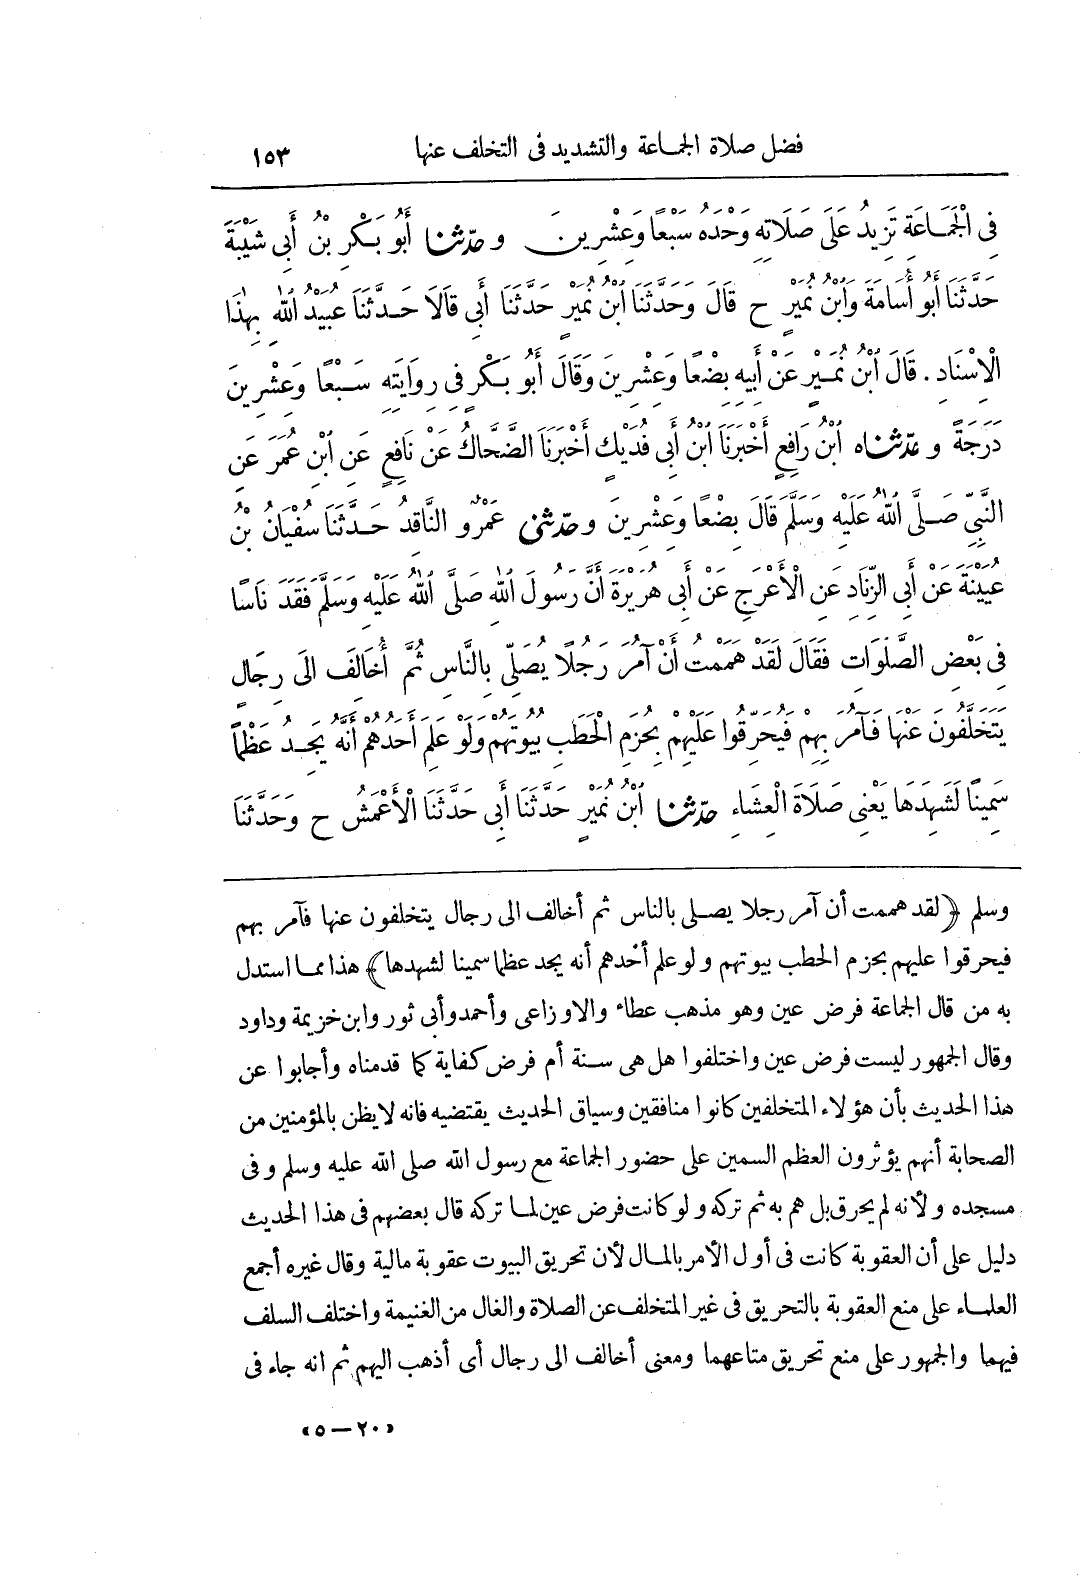 فضل صلاة الجماعة والتشديد فى التخلف عنها ١٥٣
فِى الْجَمَاعَةِ تَزِيدُ عَلَى صَلَاتِهِ وَحْدَهُ سَبْعًا وَعِشْرِينَ و حدّثنا أَبُو بَكْرِ بْنُ أَبِى شَيْبَةَ
حَدَّثَنَا أَبُو أُسَامَةَ وَابْنُ نُمَيْرٍ ح قَالَ وَحَدَّثَنَا ابْنُ نُمَيْرٍ حَدَّثَنَا أَبِى قَالَا حَدَّثَنَا عُبَيْدُ اللهِ بِهٰذَا
الْإِسْنَادِ . قَالَ ابْنُ نُمَيْرٍ عَنْ أَبِيهِ بِضْعًا وَعِشْرِينَ وَقَالَ أَبُو بَكْرٍ فِى رِوَايَتِهِ سَبْعًا وَعِشْرِينَ
دَرَجَةً و حدّثناه ابْنُ رَافِعٍ أَخْبَرَنَا ابْنُ أَبِى فُدَيْكٍ أَخْبَرَنَا الضَّحَّاكُ عَنْ نَافِعٍ عَنِ ابْنِ عُمَرَ عَنِ
النَّبِيِّ صَلَّى اللهُ عَلَيْهِ وَسَلَّمَ قَالَ بِضْعًا وَعِشْرِينَ و حدّثنى عَمْرٌو النَّاقِدُ حَدَّثَنَا سُفْيَانُ بْنُ
عُيَيْنَةَ عَنْ أَبِى الزِّنَادِ عَنِ الْأَعْرَجِ عَنْ أَبِى هُرَيْرَةَ أَنَّ رَسُولَ اللهِ صَلَّى اللهُ عَلَيْهِ وَسَلَّمَ فَقَدَ نَاسًا
فِى بَعْضِ الصَّلَوَاتِ فَقَالَ لَقَدْ هَمَمْتُ أَنْ آمُرَ رَجُلًا يُصَلِّى بِالنَّاسِ ثُمَّ أُخَالِفَ الَى رِجَالٍ
يَتَخَلَّفُونَ عَنْهَا فَآمُرَ بِهِمْ فَيُحَرِّقُوا عَلَيْهِمْ بِحُزَمِ الْحَطَبِ بُيُوتَهُمْ وَلَوْ عَلِمَ أَحَدُهُمْ أَنَّهُ يَجِدُ عَظْمًا
سَمِينًا لَشَهِدَهَا يَعْنِى صَلَاةَ الْعِشَاءِ حدّثنا ابْنُ نُمَيْرٍ حَدَّثَنَا أَبِى حَدَّثَنَا الْأَعْمَشُ ح وَحَدَّثَنَا
وسلم ﴿لقد هممت أن آمر رجلا يصلى بالناس ثم أخالف الى رجال يتخلفون عنها فآمر بهم
فيحرقوا عليهم بحزم الحطب بيوتهم ولو علم أحدهم أنه يجد عظما سمينا لشهدها﴾ هذا مما استدل
به من قال الجماعة فرض عين وهو مذهب عطاء والاوزاعى وأحمد وأبى ثور وابن خزيمة وداود
وقال الجمهور ليست فرض عين واختلفوا هل هى سنة أم فرض كفاية كما قدمناه وأجابوا عن
هذا الحديث بأن هؤلاء المتخلفين كانوا منافقين وسياق الحديث يقتضيه فانه لايظن بالمؤمنين من
الصحابة أنهم يؤثرون العظم السمين على حضور الجماعة مع رسول الله صلى الله عليه وسلم وفى
مسجده ولأنه لم يحرق بل هم به ثم تركه ولو كانت فرض عين لما تركه قال بعضهم فى هذا الحديث
دليل على أن العقوبة كانت فى أول الأمر بالمال لأن تحريق البيوت عقوبة مالية وقال غيره أجمع
العلماء على منع العقوبة بالتحريق فى غير المتخلف عن الصلاة والغال من الغنيمة واختلف السلف
فيهما والجمهور على منع تحريق متاعهما ومعنى أخالف الى رجال أى أذهب اليهم ثم انه جاء فى
«٢٠ — ٥»